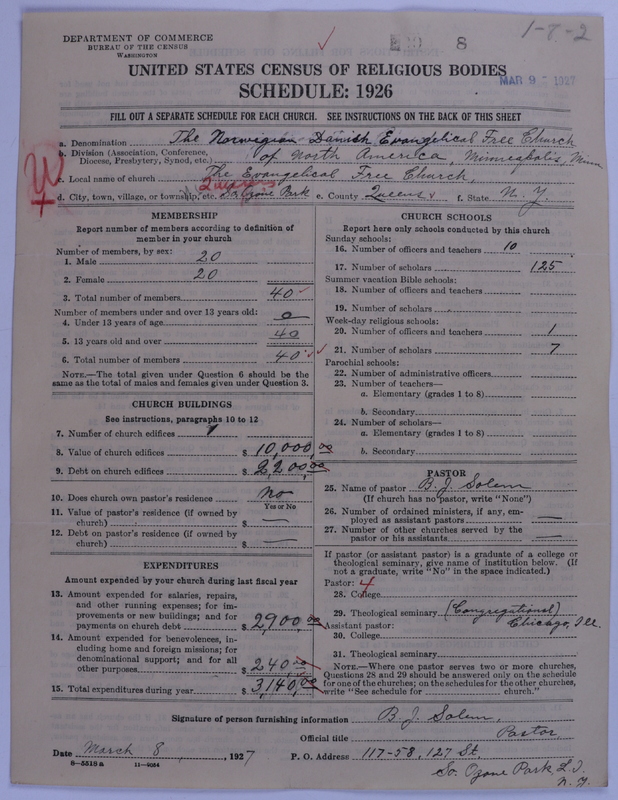 1-8-2
DEPARTMENT OF COMMERCE
BUREAU OF THE CENSUS
WASHINGTON
8
MAR 9 - 1927
UNITED STATES CENSUS OF RELIGIOUS BODIES
SCHEDULE: 1926
FILL OUT A SEPARATE SCHEDULE FOR EACH CHURCH. SEE INSTRUCTIONS ON THE BACK OF THIS SHEET
a. Denomination The Norwegian-Danish Evangelical Free Church
b. Division (Association, Conference, Diocese, Presbytery, Synod, etc.) of North America, Minneapolis, Minn
c. Local name of church The Evangelical Free Church,
Queens
d. City, town, village, or township, etc. So. Ozone Park e. County Queens f. State N. Y.
MEMBERSHIP
Report number of members according to definition of
member in your church
Number of members, by sex:
1. Male 20
2. Female 20
3. Total number of members 40
Number of members under and over 13 years old:
4. Under 13 years of age 0
5. 13 years old and over 40
6. Total number of members 40
NOTE.—The total given under Question 6 should be
same as the total of males and females given under Question 3.
CHURCH BUILDINGS
See instructions, paragraphs 10 to 12
7. Number of church edifices 1
8. Value of church edifices $ 10,000.00
9. Debt on church edifices $ 2,200.00
10. Does church own pastor's residence No
Yes or No
11. Value of pastor's residence (if owned by
church) $ —
12. Debt on pastor's residence (if owned by
church) $ —
EXPENDITURES
Amount expended by your church during last fiscal year
13. Amount expended for salaries, repairs,
and other running expenses; for im-
provements or new buildings; and for
payments on church debt $ 2,900.00
14. Amount expended for benevolences, in-
cluding home and foreign missions; for
denominational support; and for all
other purposes $ 240.00
15. Total expenditures during year $ 3,140.00
CHURCH SCHOOLS
Report here only schools conducted by this church
Sunday schools:
16. Number of officers and teachers 10
17. Number of scholars 125
Summer vacation Bible schools:
18. Number of officers and teachers
19. Number of scholars
Week-day religious schools:
20. Number of officers and teachers 1
21. Number of scholars 7
Parochial schools:
22. Number of administrative officers
23. Number of teachers—
a. Elementary (grades 1 to 8)
b. Secondary
24. Number of scholars—
a. Elementary (grades 1 to 8)
b. Secondary
PASTOR
25. Name of pastor B. J. Solem
(If church has no pastor, write "None")
26. Number of ordained ministers, if any, em-
ployed as assistant pastors —
27. Number of other churches served by the
pastor or his assistants —
If pastor (or assistant pastor) is a graduate of a college or
theological seminary, give name of institution below. (If
not a graduate, write "No" in the space indicated.)
Pastor: 4
28. College
29. Theological seminary (Congregational)
Assistant pastor: Chicago, Ill.
30. College
31. Theological seminary
NOTE.—Where one pastor serves two or more churches,
Questions 28 and 29 should be answered only on the schedule
for one of the churches; on the schedules for the other churches,
write "See schedule for church."
Signature of person furnishing information B. J. Solem,
Official title Pastor,
Date March 8, 1927 P. O. Address 117-58, 127 St.
8-5518 a 11-9054
So. Ozone Park L. I.
N. Y.